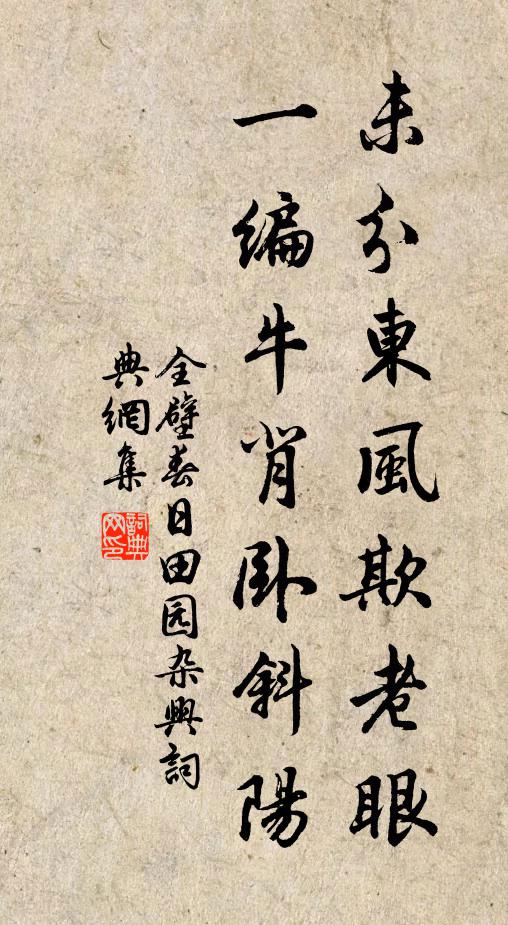 未分東風欺老眼
一編牛背卧斜陽
全璧春日田园杂興詞
典網集
詞典
网印